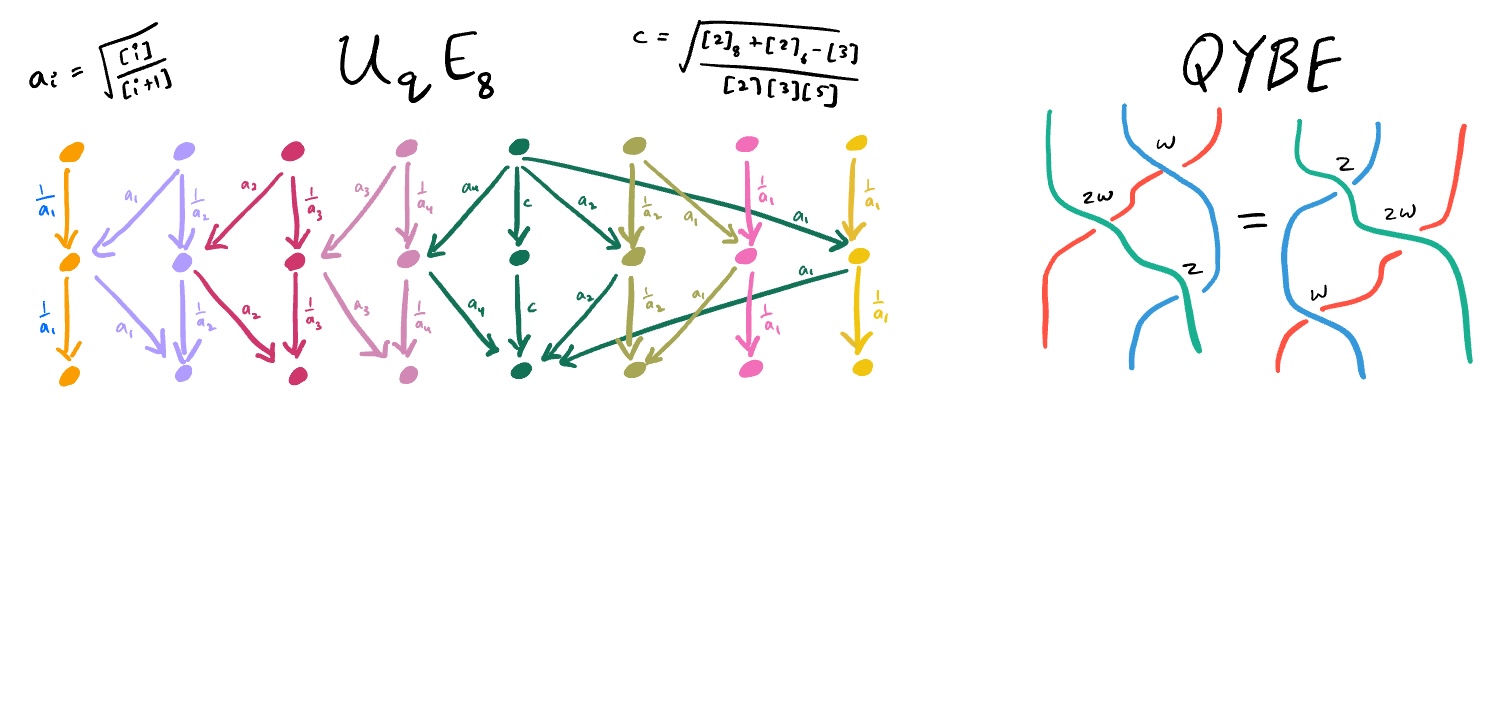 a_i = √([i]/[i+1])
U_q E_8
c = √(([2]_8 + [2]_6 - [3])/([2][3][5]))
QYBE
1/a_1 a_1 1/a_2 a_2 1/a_3 a_3 1/a_4 a_4 c a_2 1/a_2 a_1 a_1 1/a_1 1/a_1
1/a_1 a_1 1/a_2 a_2 1/a_3 a_3 1/a_4 a_4 c a_2 1/a_2 a_1 1/a_1 a_1 1/a_1
w
zw
z
=
z
zw
w